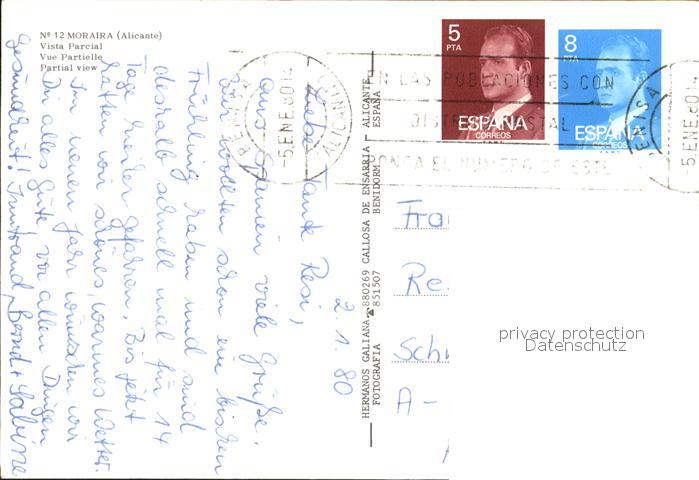 Nº 12 MORAIRA (Alicante)
Vista Parcial
Vue Partielle
Partial view
2.1.80
Liebe Tante Resi,
aus Spanien viele Grüße.
Wir wollten schon ein bischen
Frühling haben und sind
deshalb schnell mal für 14
Tage hierher gefahren. Bis jetzt
hatten wir schönes, warmes Wetter.
Im neuen Jahr wünschen wir
Dir alles Gute vor allen Dingen
Gesundheit! Irmtraud, Bernd + Sabine
HERMANOS GALIANA ☎ 880269 CALLOSA DE ENSARRIA - ALICANTE
FOTOGRAFIA 851507 BENIDORM ESPAÑA
5
PTA
ESPAÑA
CORREOS
8
PTA
ESPAÑA
CORREOS
DENIA
-5 ENE 80 14
ALICANTE
EN LAS POBLACIONES CON
DISTRITO POSTAL
PONGA EL NUMERO DE ESTE
DENIA
-5 ENE 80 14
Fra
Re
Sch
A-
privacy protection
Datenschutz